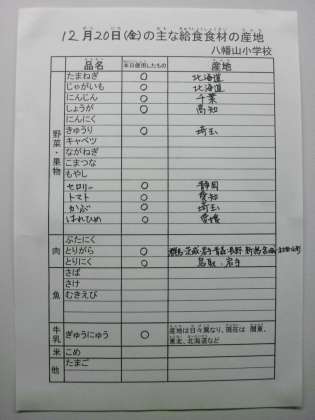 12月20日(金)の主な給食食材の産地
八幡山小学校
品名 本日使用したもの 産地
野菜・果物
たまねぎ ○ 北海道
じゃがいも ○ 北海道
にんじん ○ 千葉
しょうが ○ 高知
にんにく
きゅうり ○ 埼玉
キャベツ
ながねぎ
こまつな
もやし
セロリー ○ 静岡
トマト ○ 愛知
かぶ ○ 埼玉
はれひめ ○ 愛媛
肉
ぶたにく
とりがら ○ 群馬 茨城 岩手 青森 長野 新潟 宮城
とりにく ○ 鳥取・岩手
魚
さば
さけ
むきえび
牛乳
ぎゅうにゅう ○ 産地は日々異なり、現在は 関東、
東北、北海道など
米 こめ
他 たまご